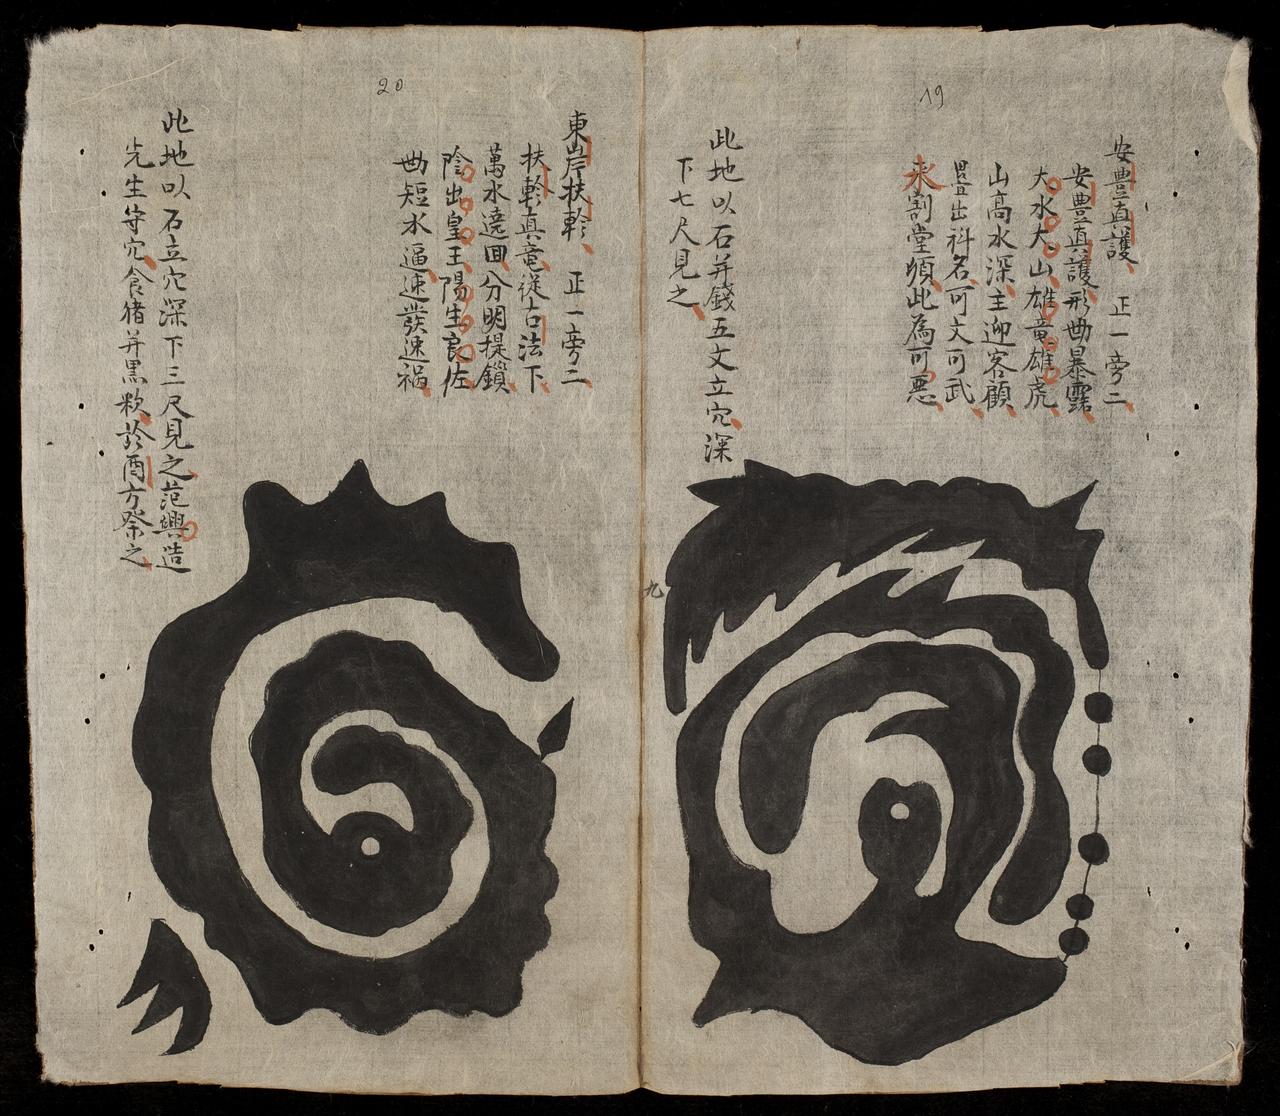 19
安豊真護 正一旁二
安豊真護形曲暴露
大水大山雄竜雄虎
山高水深主迎客顧
疊出科名可文可武
来割堂須此為可惡
此地以石并錢五文立穴深
下七尺見之
九
20
東岸扶軫 正一旁二
扶軫真竜従古法下
萬水遶囬分明提鎖
陰出皇王陽生良佐
曲短水逼速發速禍
此地以石立穴深下三尺見之范興造
先生守穴食猪并黒歀於酉方祭之